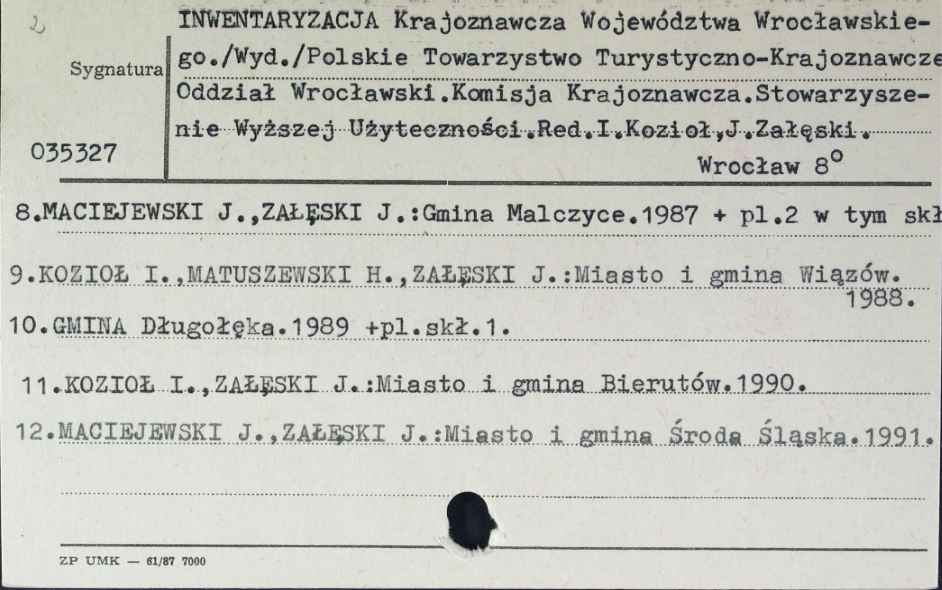 2
INWENTARYZACJA Krajoznawcza Województwa Wrocławskie-
go./Wyd./Polskie Towarzystwo Turystyczno-Krajoznawcze
Sygnatura
Oddział Wrocławski.Komisja Krajoznawcza.Stowarzysze-
nie Wyższej Użyteczności.Red.I.Kozioł,J.Załęski.
035327
Wrocław 8º
8.MACIEJEWSKI J.,ZAŁĘSKI J.:Gmina Malczyce.1987 + pl.2 w tym skł
9.KOZIOŁ I.,MATUSZEWSKI H.,ZAŁĘSKI J.:Miasto i gmina Wiązów.
1988.
10.GMINA Długołęka.1989 +pl.skł.1.
11.KOZIOŁ I.,ZAŁĘSKI J.:Miasto i gmina Bierutów.1990.
12.MACIEJEWSKI J.,ZAŁĘSKI J.:Miasto i gmina Środa Śląska.1991.
ZP UMK — 61/87 7000